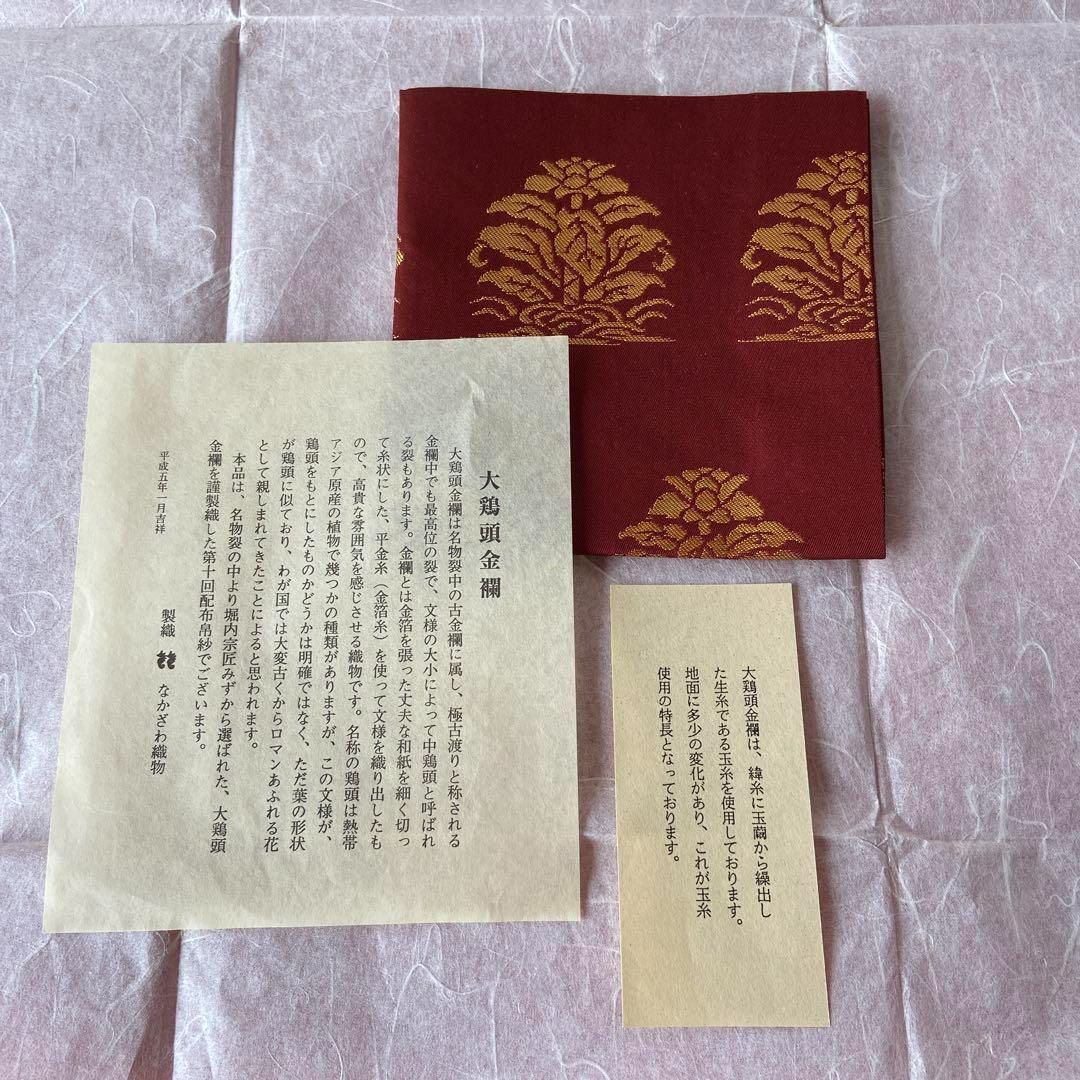 大鶏頭金襴
大鶏頭金襴は名物裂中の古金襴に属し、極古渡りと称される
金襴中でも最高位の裂で、文様の大小によって中鶏頭と呼ばれ
る裂もあります。金襴とは金箔を張った丈夫な和紙を細く切っ
て糸状にした、平金糸（金箔糸）を使って文様を織り出したも
ので、高貴な雰囲気を感じさせる織物です。名称の鶏頭は熱帯
アジア原産の植物で幾つかの種類がありますが、この文様が、
鶏頭をもとにしたものかどうかは明確ではなく、ただ葉の形状
が鶏頭に似ており、わが国では大変古くからロマンあふれる花
として親しまれてきたことによると思われます。
本品は、名物裂の中より堀内宗匠みずから選ばれた、大鶏頭
金襴を謹製織した第十回配布帛紗でございます。
平成五年一月吉祥
製織 なかざわ織物
大鶏頭金襴は、緯糸に玉繭から繰出し
た生糸である玉糸を使用しております。
地面に多少の変化があり、これが玉糸
使用の特長となっております。